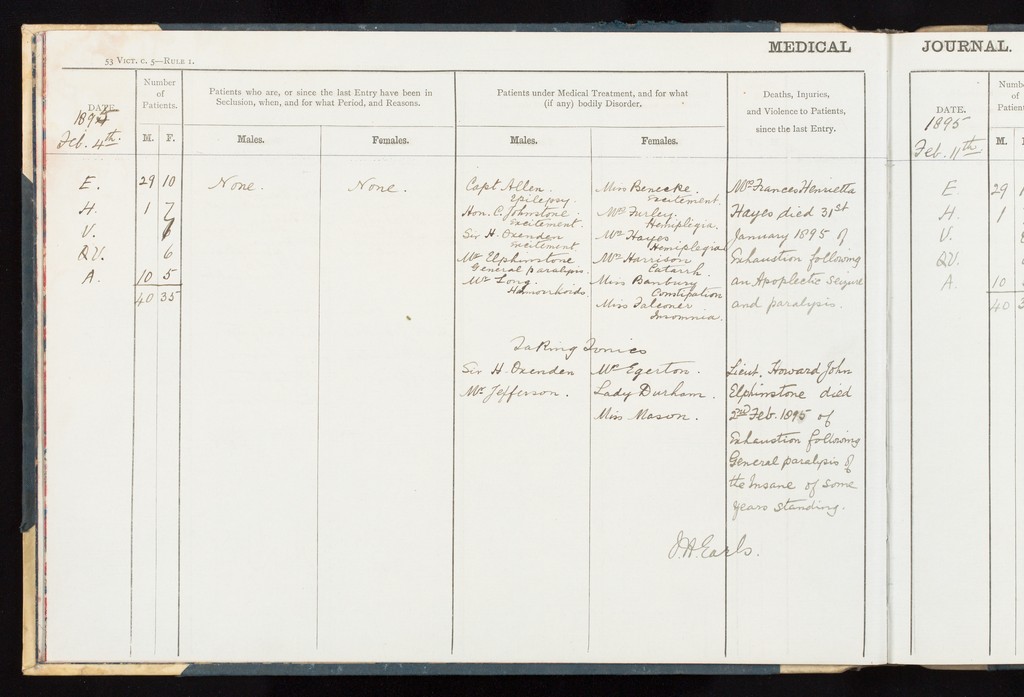 MEDICAL JOURNAL.
53 VICT. C. 5—RULE 1.
DATE.
1895
Feb. 4th.
Number
of
Patients.
M. F.
Patients who are, or since the last Entry have been in
Seclusion, when, and for what Period, and Reasons.
Males.
Females.
Patients under Medical Treatment, and for what
(if any) bodily Disorder.
Males.
Females.
Deaths, Injuries,
and Violence to Patients,
since the last Entry.
E. 29 10
H. 1 7
V. 7
QV. 6
A. 10 5
40 35
None.
None.
Capt Allen.
Epilepsy.
Hon. C. Johnstone.
Excitement.
Sir H. Oxenden
Excitement
Mr Elphinstone
General paralysis.
Mr Long.
Hæmorrhoids
Miss Benecke.
Excitement.
Mrs Furley.
Hemiplegia.
Mrs Hayes
Hemiplegia
Mrs Harrison
Catarrh.
Miss Banbury
Constipation
Miss Falconer
Insomnia.
Taking Tonics
Sir H. Oxenden
Mr Jefferson.
Mrs Egerton.
Lady Durham.
Miss Mason.
Mrs Frances Henrietta
Hayes died 31st
January 1895 of
Exhaustion following
an Apoplectic Seizure
and paralysis.
Lieut. Howard John
Elphinstone died
2nd Feb. 1895 of
Exhaustion following
General paralysis of
the Insane of some
years standing.
J.H. Earls.
DATE.
1895
Feb. 11th.
M.
E 29
H. 1
V.
QV.
A. 10
40